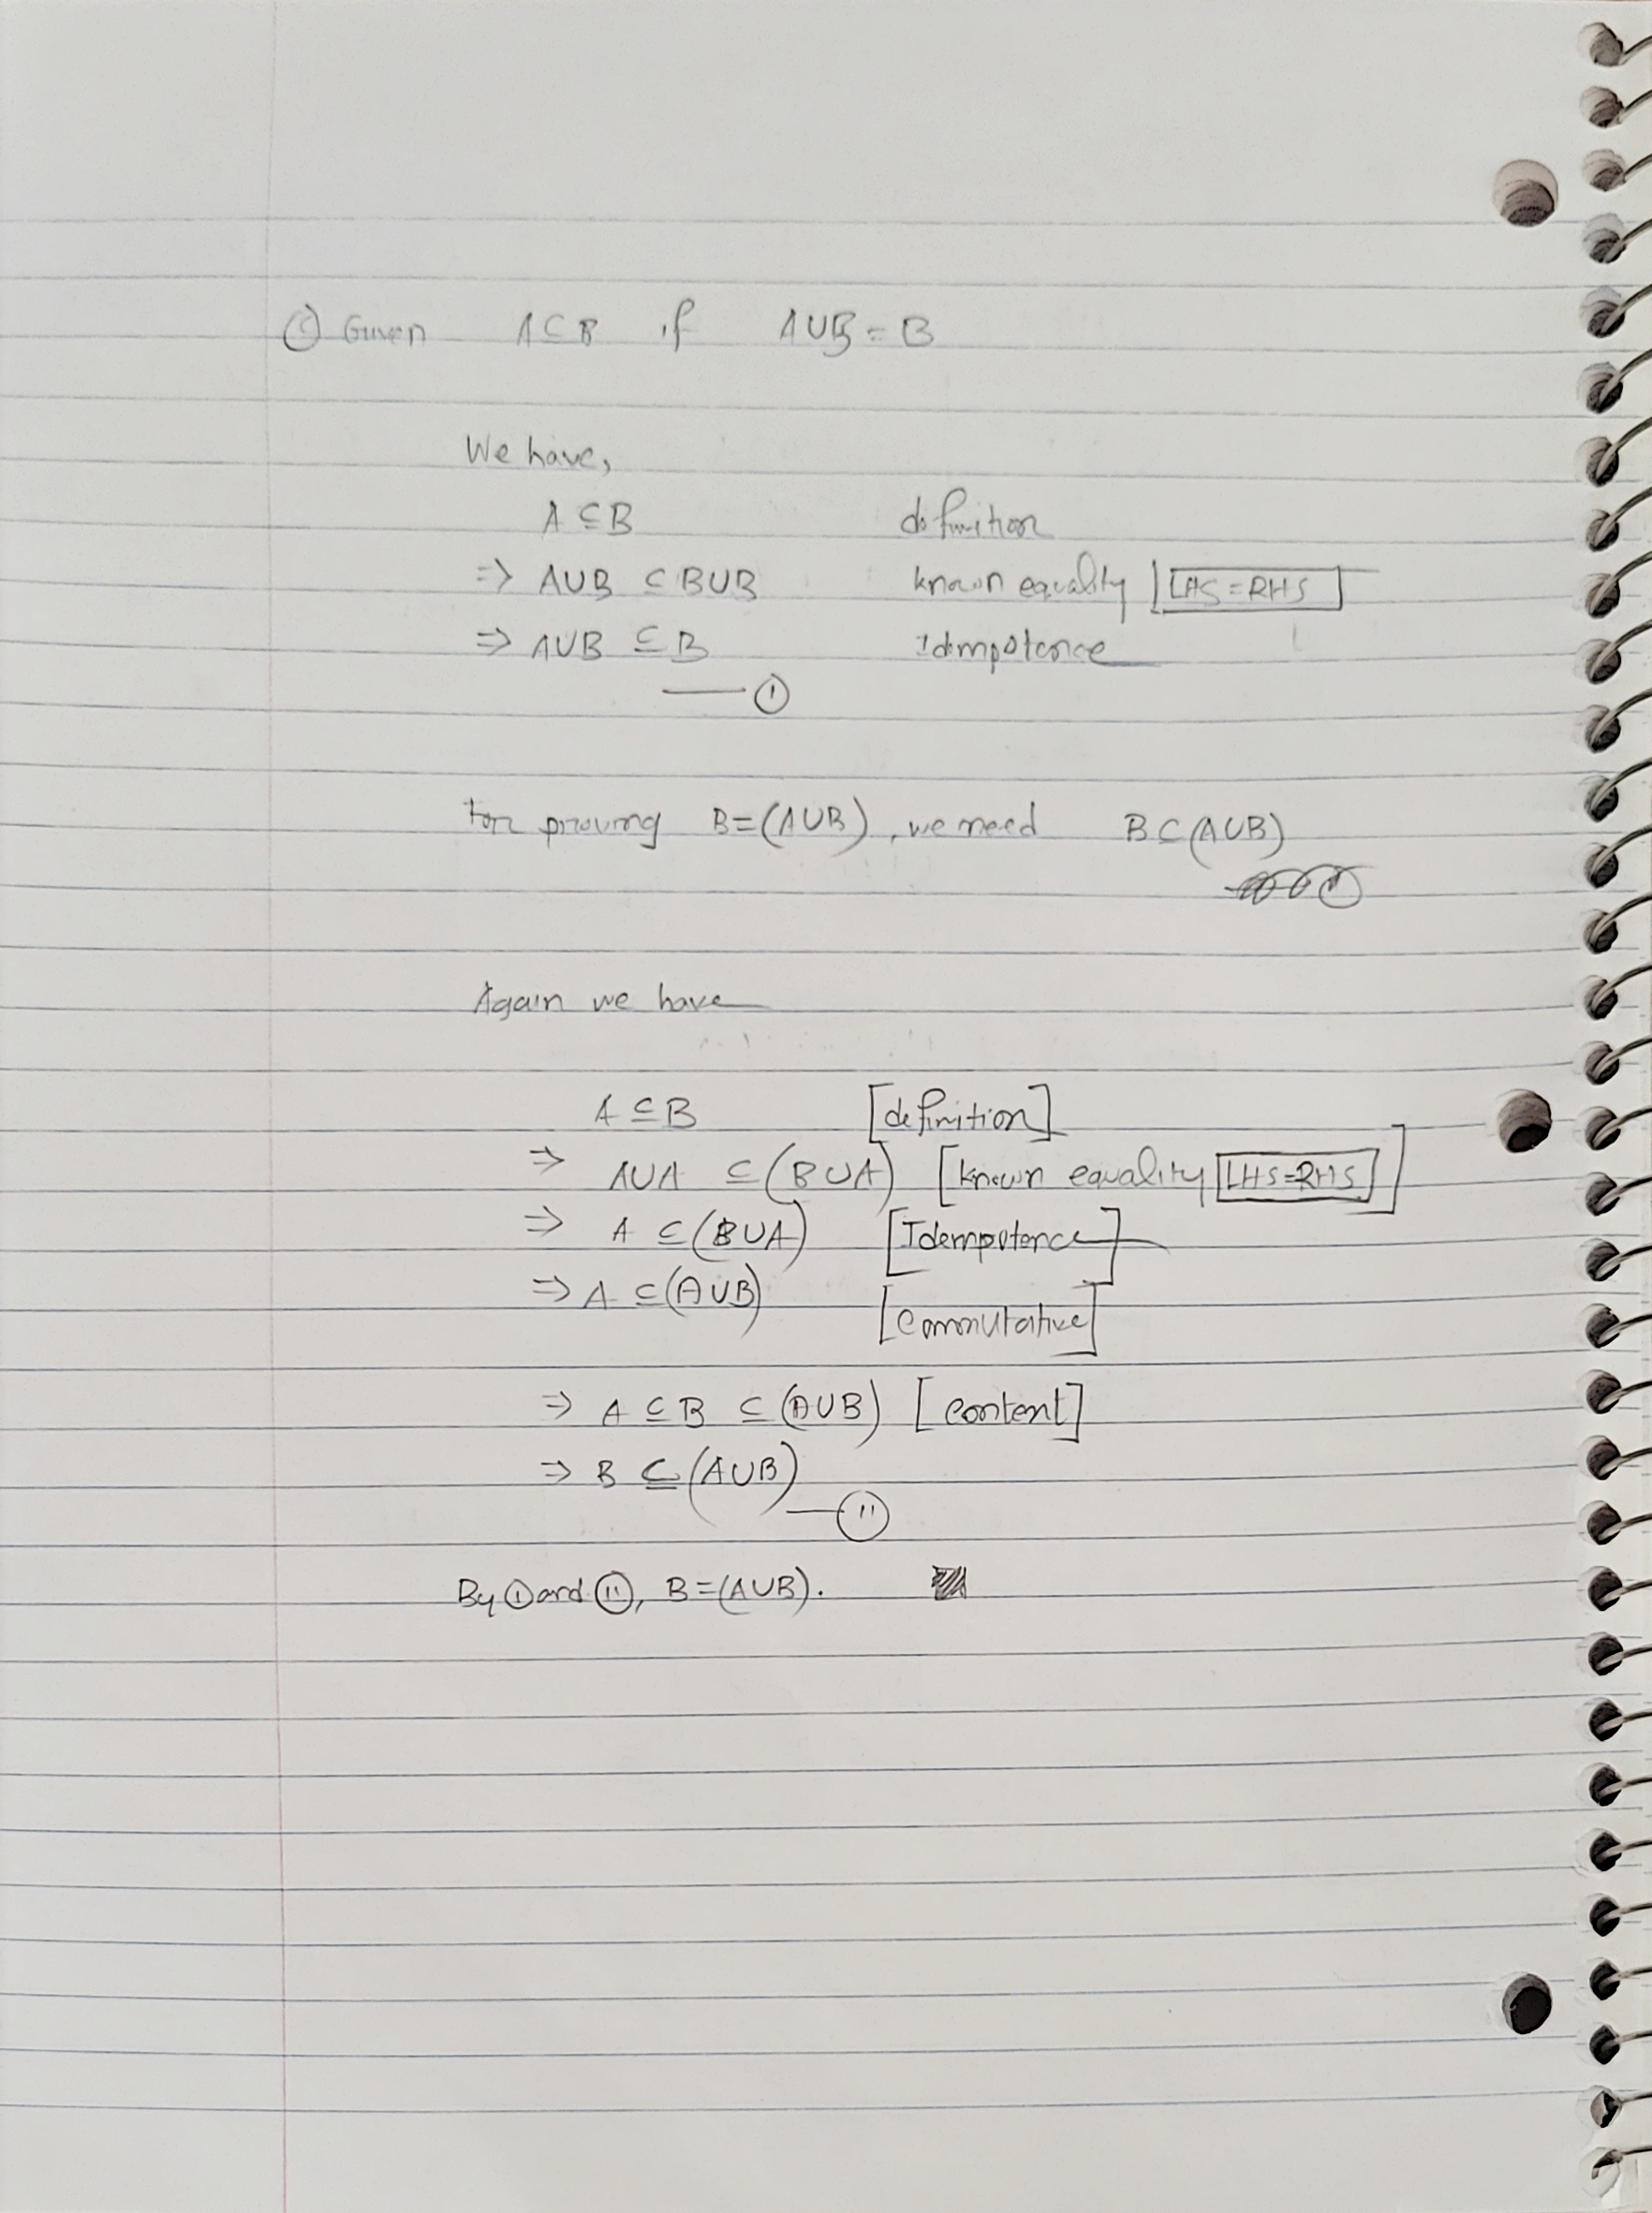 Ⓒ Given A ⊆ B if A∪B = B
We have,
A ⊆ B definition
⇒ A∪B ⊆ B∪B known equality [LHS = RHS]
⇒ A∪B ⊆ B Idempotence
— ①
For proving B = (A∪B), we need B ⊆ (A∪B)
Again we have
A ⊆ B [definition]
⇒ A∪A ⊆ (B∪A) [known equality [LHS=RHS]]
⇒ A ⊆ (B∪A) [Idempotence]
⇒ A ⊆ (A∪B) [Commutative]
⇒ A ⊆ B ⊆ (A∪B) [content]
⇒ B ⊆ (A∪B)
— ⑪
By ① and ⑪, B = (A∪B).